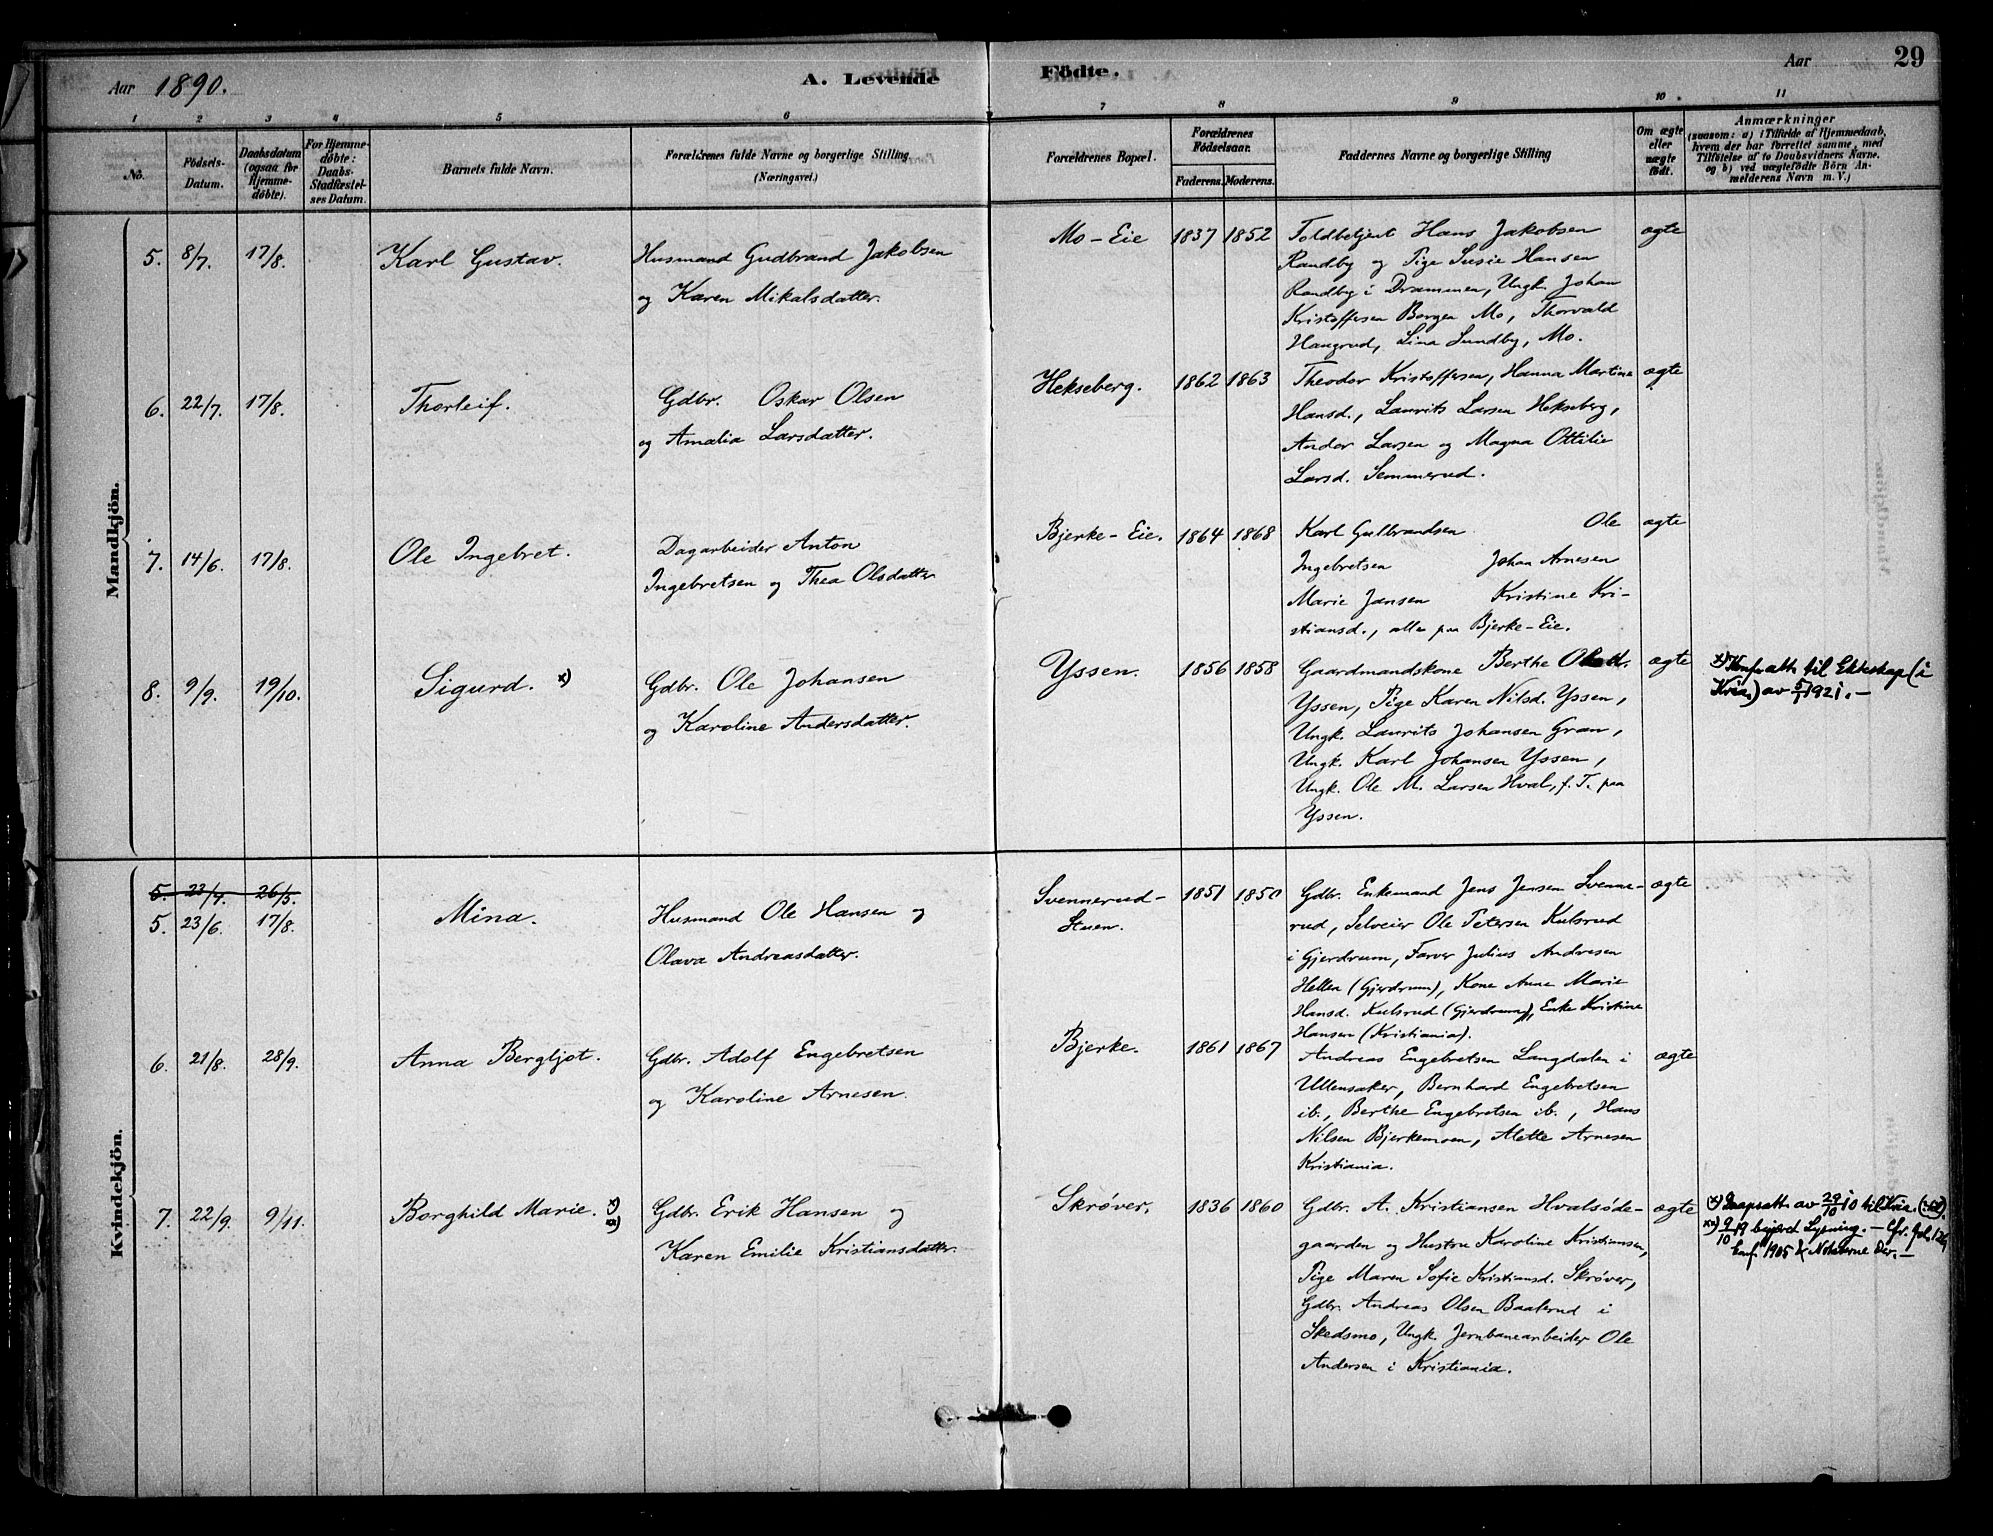 Aar 1890.
A. Levende
Födte.
Aar
29
1 2 3 4 5 6 7 8 9 10 11
No.
Födsels-
Datum.
Daabsdatum
(ogsaa for
Hjemme-
døbte).
For Hjemme-
døbte:
Daabs-
Stadfæstel-
ses Datum.
Barnets fulde Navn.
Forældrenes fulde Navne og borgerlige Stilling
(Næringsvei.)
Forældrenes Bopæl.
Forældrenes
Födselsaar.
Faderens. Moderens.
Faddernes Navne og borgerlige Stilling
Om ægte
eller
uægte
født.
Anmærkninger
(saasom: a) i Tilfælde af Hjemmedaab,
hvem der har forrettet samme, med
Tilføielse af to Daabsvidners Navne.
og b) ved uægtefödte Börn An-
melderens Navn m. V.)
Mandkjön.
5. 8/7. 17/8.
Karl Gustav.
Husmand Gudbrand Jakobsen
og Karen Mikalsdatter.
Mo-Eie 1837 1852
Toldbetjent Hans Jakobsen
Randby og Pige Susie Hansen
Randby i Drammen, Ungk. Johan
Kristoffersen Borgen Mo, Thorvald
Haugrud, Lina Sundby, Mo.
ægte
6. 22/7. 17/8.
Thorleif.
Gdbr. Oskar Olsen
og Amalia Larsdatter.
Hekseberg. 1862 1863
Theodor Kristoffersen, Hanna Martine
Hansd., Laurits Larsen Hekseberg,
Andor Larsen og Magna Ottilie
Larsd. Semmerud.
ægte
7. 14/6. 17/8.
Ole Ingebret.
Dagarbeider Anton
Ingebretsen og Thea Olsdatter
Bjerke-Eie. 1864 1868
Karl Gulbrandsen Ole
Ingebretsen Johan Arnesen
Marie Jansen Kristine Kri-
stiansd., alle paa Bjerke-Eie.
ægte
8. 9/9. 19/10.
Sigurd. x)
Gdbr. Ole Johansen
og Karoline Andersdatter.
Yssen. 1856 1858
Gaardmandskone Berthe
Yssen, Pige Karen Nilsd. Yssen,
Ungk. Laurits Johansen Gran,
Ungk. Karl Johansen Yssen,
Ungk. Ole M. Larsen Hval, f. T. paa
Yssen.
ægte
til Ekteskap (i
Kria.) av 5/1 1921. –
Kvindekjön.
5. 23/4. 26/5.
5. 23/6. 17/8.
Mina.
Husmand Ole Hansen og
Olava Andreasdatter.
Svennerud-
Stuen.
1851 1850
Gdbr. Enkemand Jens Jensen Svenne-
rud, Selveier Ole Petersen Kulsrud
i Gjerdrum, Farver Julius Andresen
Hellen (Gjerdrum), Kone Anne Marie
Hansd. Kulsrud (Gjerdrum), Enke Kristine
Hansen (Kristiania).
ægte
6. 21/8. 28/9.
Anna Bergljot.
Gdbr. Adolf Engebretsen
og Karoline Arnesen.
Bjerke. 1861 1867
Andreas Engebretsen Langdalen i
Ullensaker, Bernhard Engebretsen
ib., Berthe Engebretsen ib., Hans
Nilsen Bjerkemoen, Alette Arnesen
Kristiania.
ægte
7. 22/9. 9/11.
Borghild Marie. x) xx)
Gdbr. Erik Hansen og
Karen Emilie Kristiansdatter.
Skrøver. 1836 1860
Gdbr. A. Kristiansen Hvalsøde-
gaarden og Hustru Karoline Kristiansen,
Pige Maren Sofie Kristiansd. Skrøver,
Gdbr. Andreas Olsen Baalerud i
Skedsmo, Ungk. Jernbanearbeider Ole
Andersen i Kristiania.
ægte
x) av 29/10 10 til Kria.
xx) 9/10 19 begjæret Lysning. – Cfr.
Conf. 1905 & Noterne Der. –